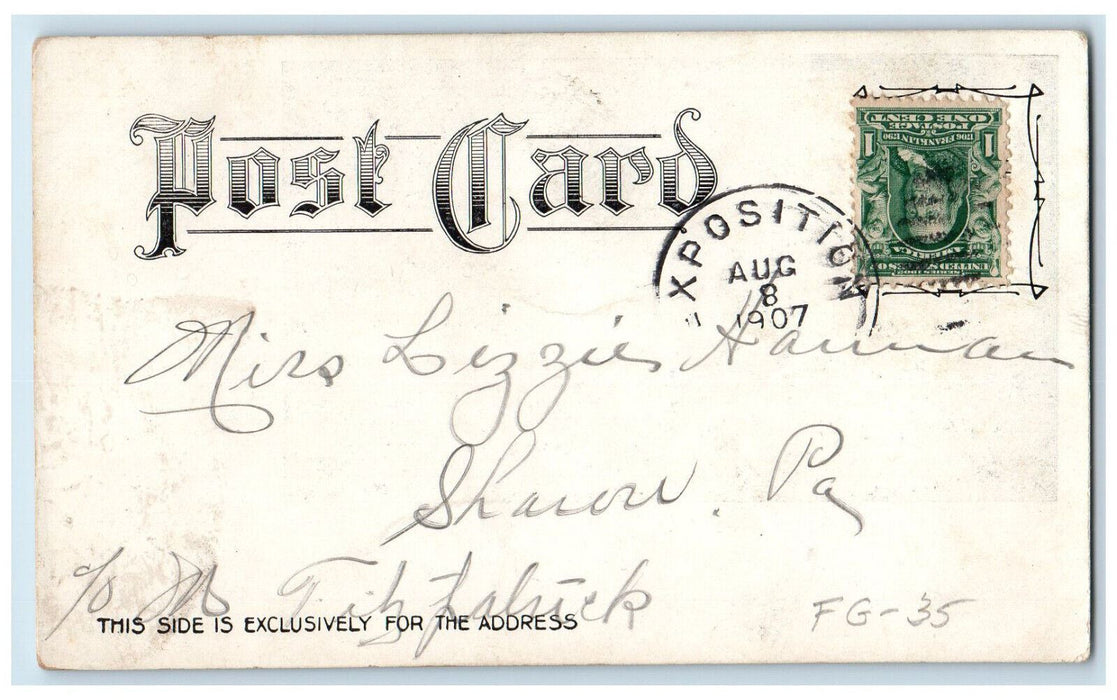 Post Card
EXPOSITION
AUG
8
1907
1 POSTAGE ONE CENT 1
1706 FRANKLIN 1790
SERIES 1902
UNITED STATES OF AMERICA
Miss Lizzie Hannan
Sharon, Pa
c/o M Fitzpatrick
THIS SIDE IS EXCLUSIVELY FOR THE ADDRESS
FG-35